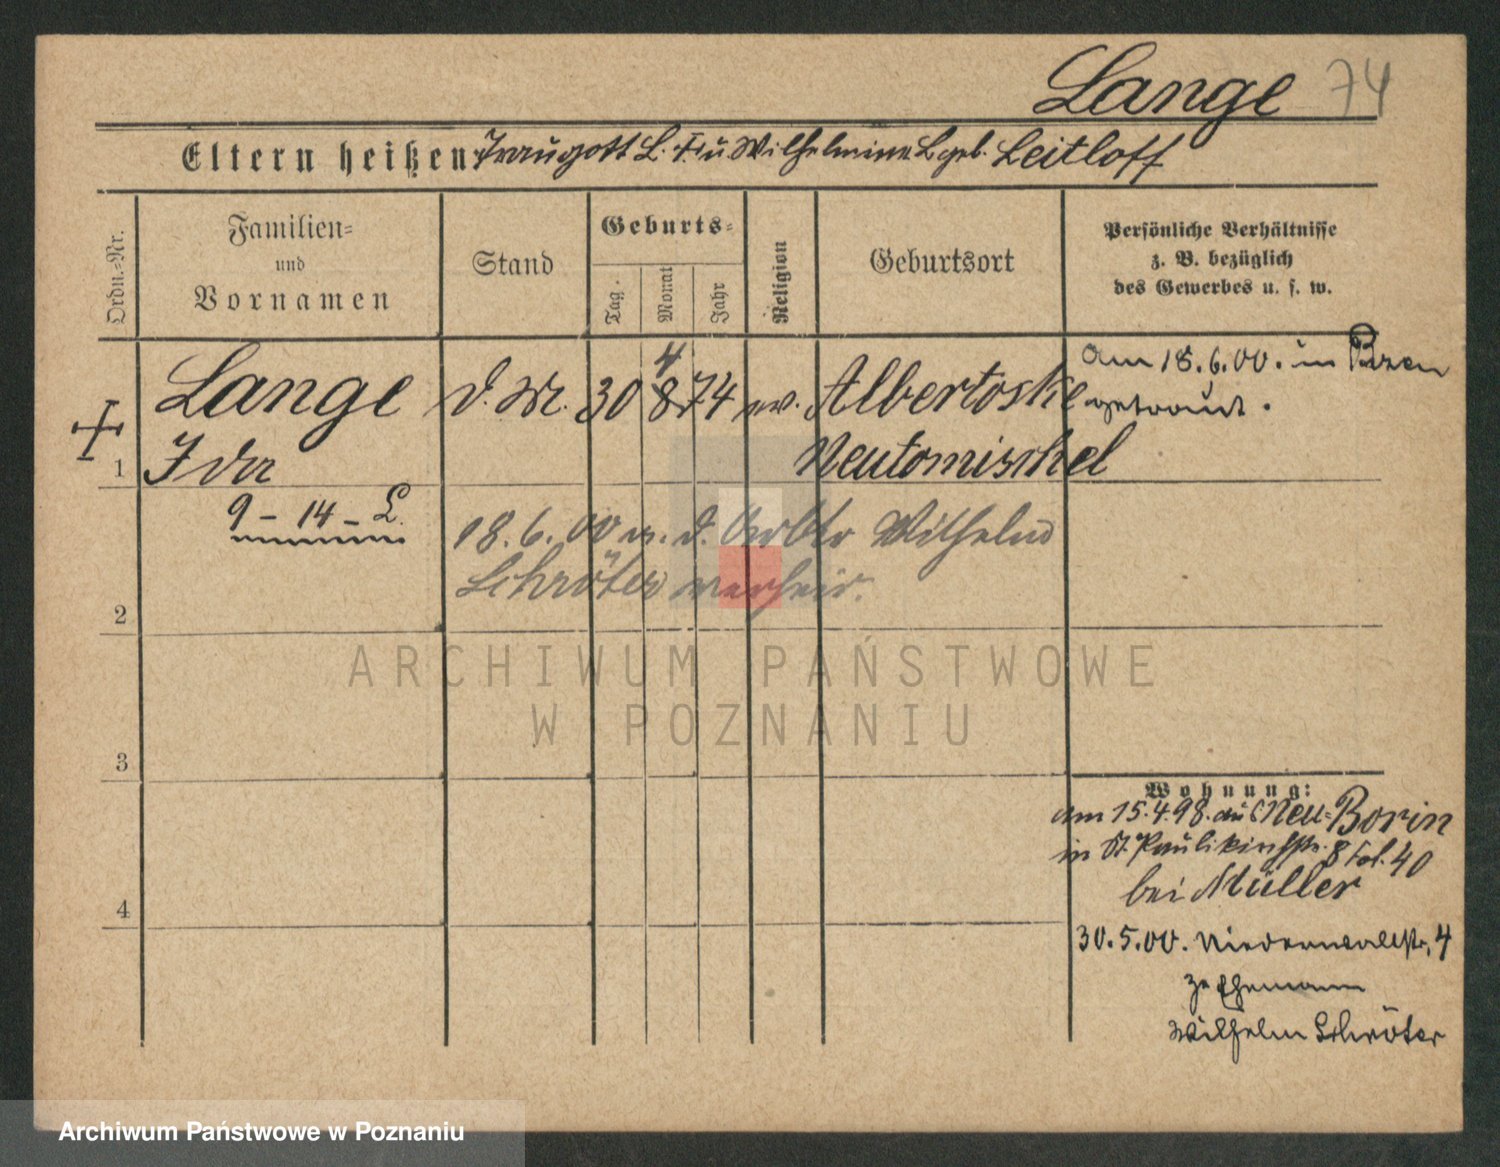 Lange 74
Eltern heißen Traugott L. u Wilhelmine L geb. Leitloff
Ordn.=Nr.
Familien=
und
Vornamen
Stand
Geburts=
Tag.
Monat
Jahr
Religion
Geburtsort
Persönliche Verhältnisse
z. B. bezüglich
des Gewerbes u. s. w.
4
Lange d. 30 8 74 ev. Albertoske
1 Ida Neutomischel
am 18.6.00. in
getraut.
9 - 14 - L.
18. 6. 00 m. d. Wilhelm
Schröter verheir.
2
3
4
Wohnung:
am 15.4.98. aus Neu=Borin
in St. Paulikirchstr. 8 fol. 40
bei Müller
30.5.00. Niederwallstr. 4
z. Ehemann
Wilhelm Schröter
ARCHIWUM PAŃSTWOWE
W POZNANIU
Archiwum Państwowe w Poznaniu